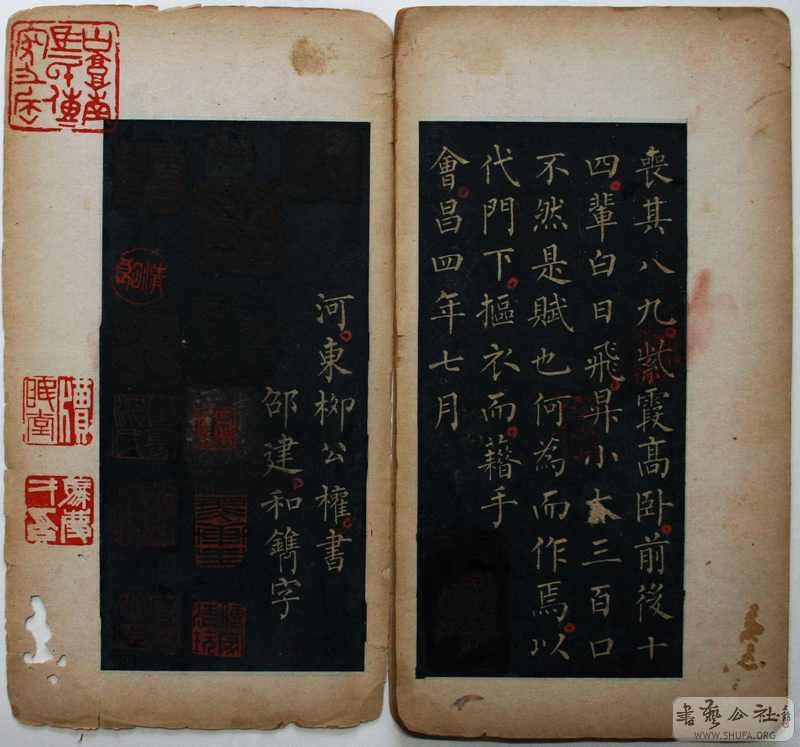 喪其八九紫霞高卧前後十
四輩白日飛昇小大三百口
不然是賦也何為而作焉以
代門下摳衣而藉手
會昌四年七月
河東柳公權書
邵建和鐫字
書藝公社
WWW.SHUFA.ORG